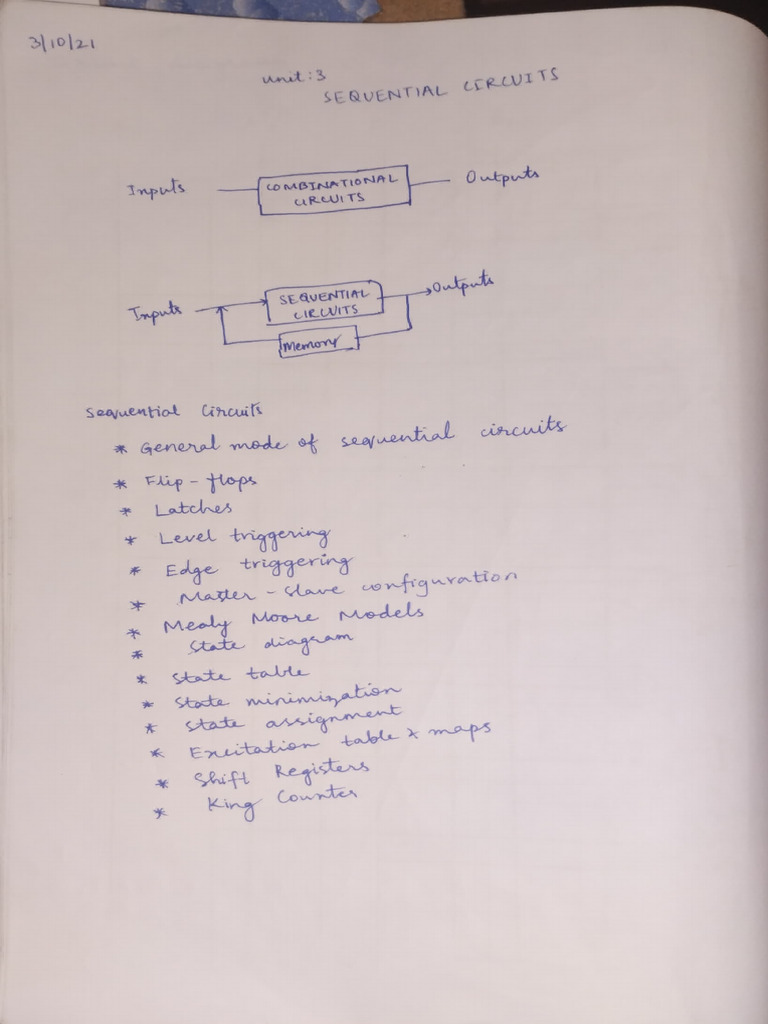 3/10/21
unit:3
SEQUENTIAL CIRCUITS
Inputs COMBINATIONAL CIRCUITS Outputs
Inputs SEQUENTIAL CIRCUITS Outputs
Memory
Sequential Circuits
* General mode of sequential circuits
* Flip-flops
* Latches
* Level triggering
* Edge triggering
* Master-slave configuration
* Mealy Moore Models
* State diagram
* State table
* State minimization
* State assignment
* Excitation table & maps
* Shift Registers
* King Counter